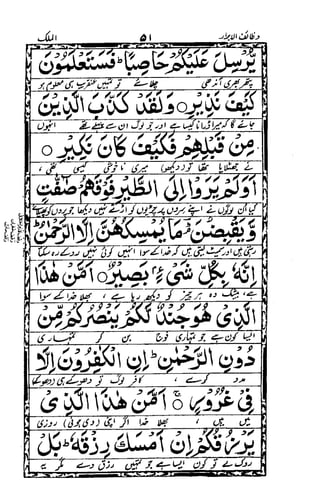 وظائف الابرار ۵۱ الملك
يُّرْسِلَ عَلَيْكُمْ حَاصِبًا ؕ فَسَتَعْلَمُوْنَ
پتھر بھری آندھی چلائے تو تمہیں عنقریب ہی معلوم ہو
كَيْفَ نَذِيْرِ ○ وَلَقَدْ كَذَّبَ الَّذِيْنَ
جائے گا کہ میرا ڈرانا کیسا ہے اور جو لوگ ان سے پہلے تھے انہوں
مِنْ قَبْلِهِمْ فَكَيْفَ كَانَ نَكِيْرِ ○
نے جھٹلایا تھا تو (دیکھو) میری ناخوشی کیسی تھی
اَوَلَمْ يَرَوْا اِلَى الطَّيْرِ فَوْقَهُمْ صٰٓفّٰتٍ
کیا ان لوگوں نے اپنے سروں پر چڑیوں کو اڑتے نہیں دیکھا جو پروں کو پھیلائے
وَّيَقْبِضْنَ ؔۘ مَا يُمْسِكُهُنَّ اِلَّا الرَّحْمٰنُ ؕ
رہتی ہیں اور سمیٹ لیتی ہیں کہ خدا کے سوا انہیں کوئی نہیں روکے رہ سکتا
اِنَّهٗ بِكُلِّ شَیْءٍۭ بَصِيْرٌ ○ اَمَّنْ هٰذَا
ہے، بیشک وہ ہر چیز کو دیکھ رہا ہے، بھلا خدا کے سوا
الَّذِيْ هُوَ جُنْدٌ لَّكُمْ يَنْصُرُكُمْ مِّنْ
ایسا کون ہے جو تمہاری فوج بن کر تمہاری
دُوْنِ الرَّحْمٰنِ ؕ اِنِ الْكٰفِرُوْنَ اِلَّا
مدد کرے، کافر لوگ تو دھوکے ہی (دھوکے)
فِيْ غُرُوْرٍ ○ اَمَّنْ هٰذَا الَّذِيْ
میں ہیں، بھلا خدا اگر اپنی (دی ہوئی) روزی
يَرْزُقُكُمْ اِنْ اَمْسَكَ رِزْقَهٗ ۚ بَلْ
روک لے تو کون ایسا ہے جو تمہیں رزق دے مگر یہ